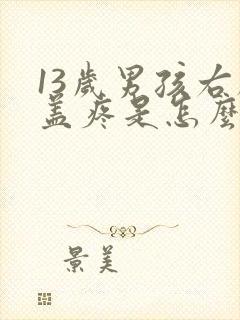 13歲男孩右
盖疼是怎麼
景美